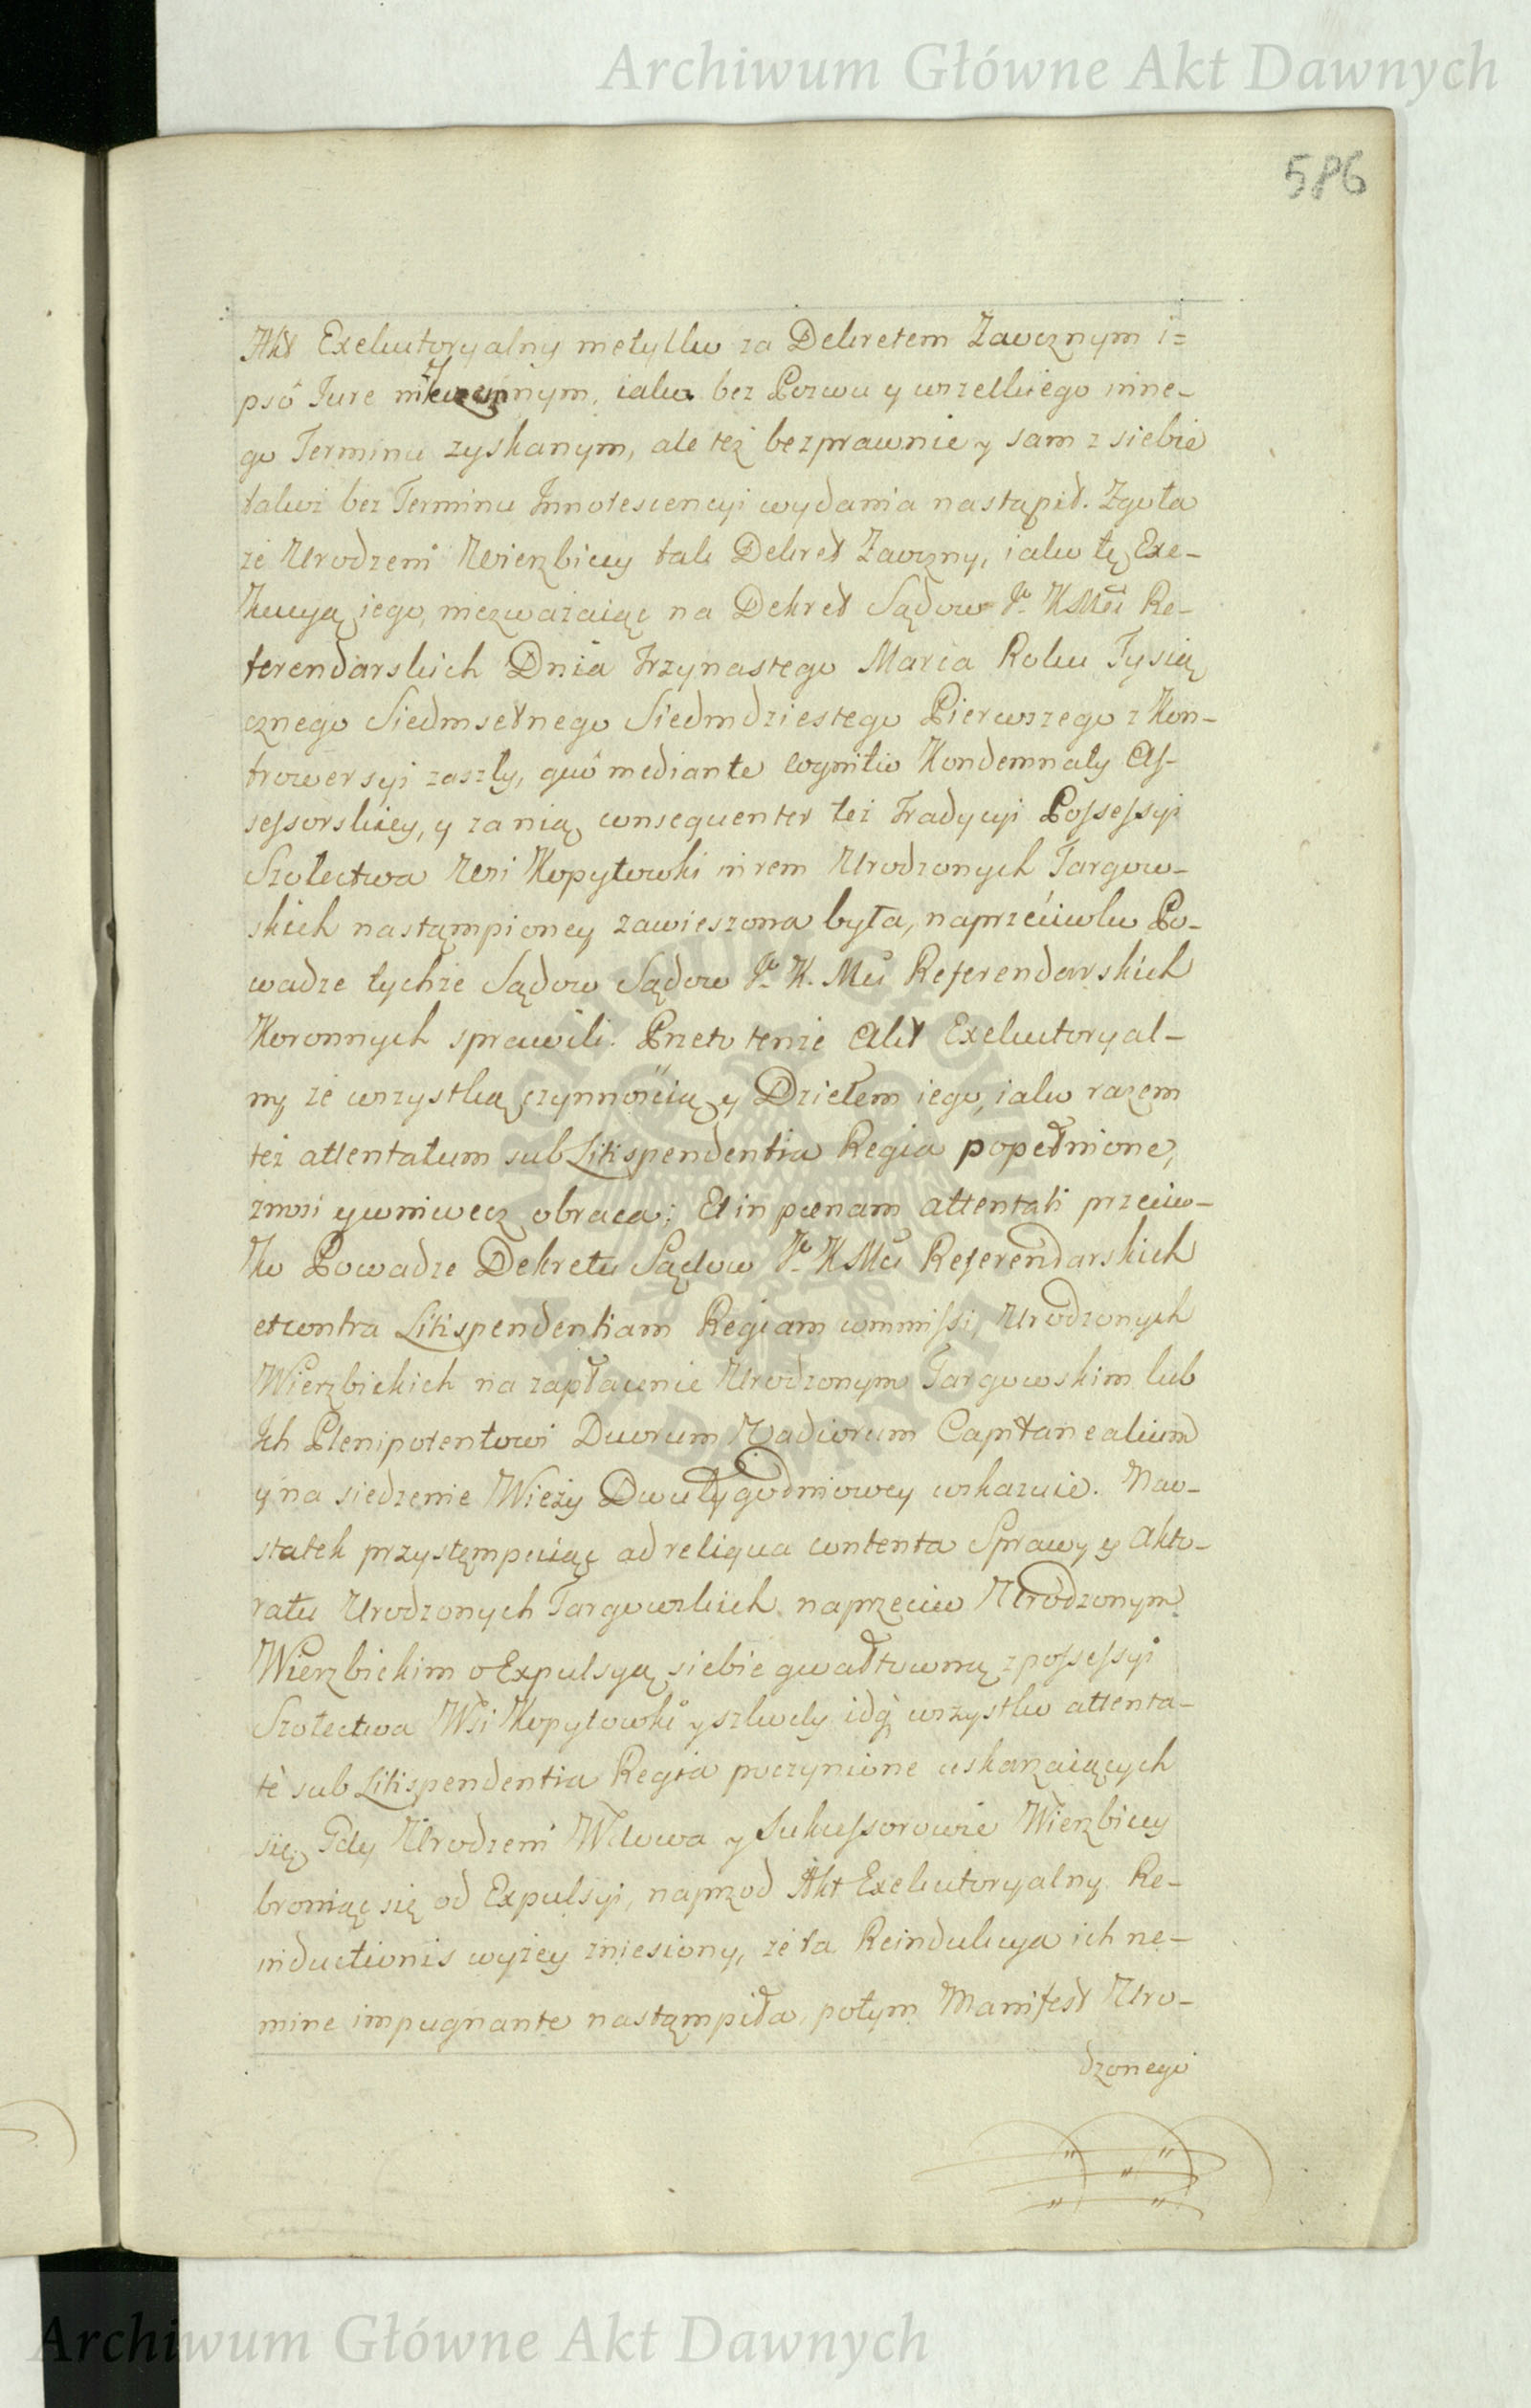 Archiwum Główne Akt Dawnych
586
Akt Exekutoryalny nietylko za Dekretem Zaocznym i=
psô Jure nikczemnym, iako bez Pozwu y wszelkiego inne-
go Terminu zyskanym, ale też bezprawnie y sam z siebie
takoż bez Terminu Innotescencyi wydania nastąpił. Zgoła
że Urodzeni Wierzbiccy tak Dekret Zaoczny, iako tę Exe-
kucyą iego, niezważaiąc na Dekret Sądow J. K Mci Re-
ferendarskich Dnia trzynastego Marca Roku Tysią
cznego Siedmsetnego Siedmdziestego Pierwszego z Kon-
trowersyi zaszły, quô mediante cognitio Kondemnaty As-
sessorskiey, y za nią consequenter też Tradycyi Possessyi
Szołectwa Wsi Kopytowki in rem Urodzonych Targow-
skich nastąmpioney zawieszona była, naprzeciwko Po-
wadze tychże Sądow Sądow J. K. Mci Referendarskich
Koronnych sprawili. Przeto tenże Akt Exekutoryal-
ny ze wszystką czynnością y Dziełem iego, iako razem
też attentatum sub Litispendentia Regia popełnione,
znosi y wniwecz obraca; Et in pœnam attentati przeciw-
ko Powadze Dekretu Sądow J. K Mci Referendarskich
et contra Litispendentiam Regiam commissi, Urodzonych
Wierzbickich na zapłacenie Urodzonym Targowskim lub
Ich Plenipotentowi Duorum Vadiorum Capitanealium
y na siedzenie Wieży Dwutygodniowey wskazuie. Nao-
statek przystęmpuiąc ad reliqua contenta Sprawy y Akto-
ratu Urodzonych Targowskich naprzeciw Urodzonym
Wierzbickim o Expulsyą siebie gwałtowną z possessyi
Szołectwa Wsi Kopytowki y szkody idq̃ wszystko attenta-
tè sub Litispendentia Regia poczynione uskarzaiących
się, Gdy Urodzeni Wdowa y Sukcessorowie Wierzbiccy
broniąc się od Expulsyi, naprzod Akt Exekutoryalny Re-
inductionis wyżey zniesiony, że ta Reindukcya ich ne-
mine impugnante nastąmpiła, potym Manifest Uro-
dzonego
Archiwum Główne Akt Dawnych